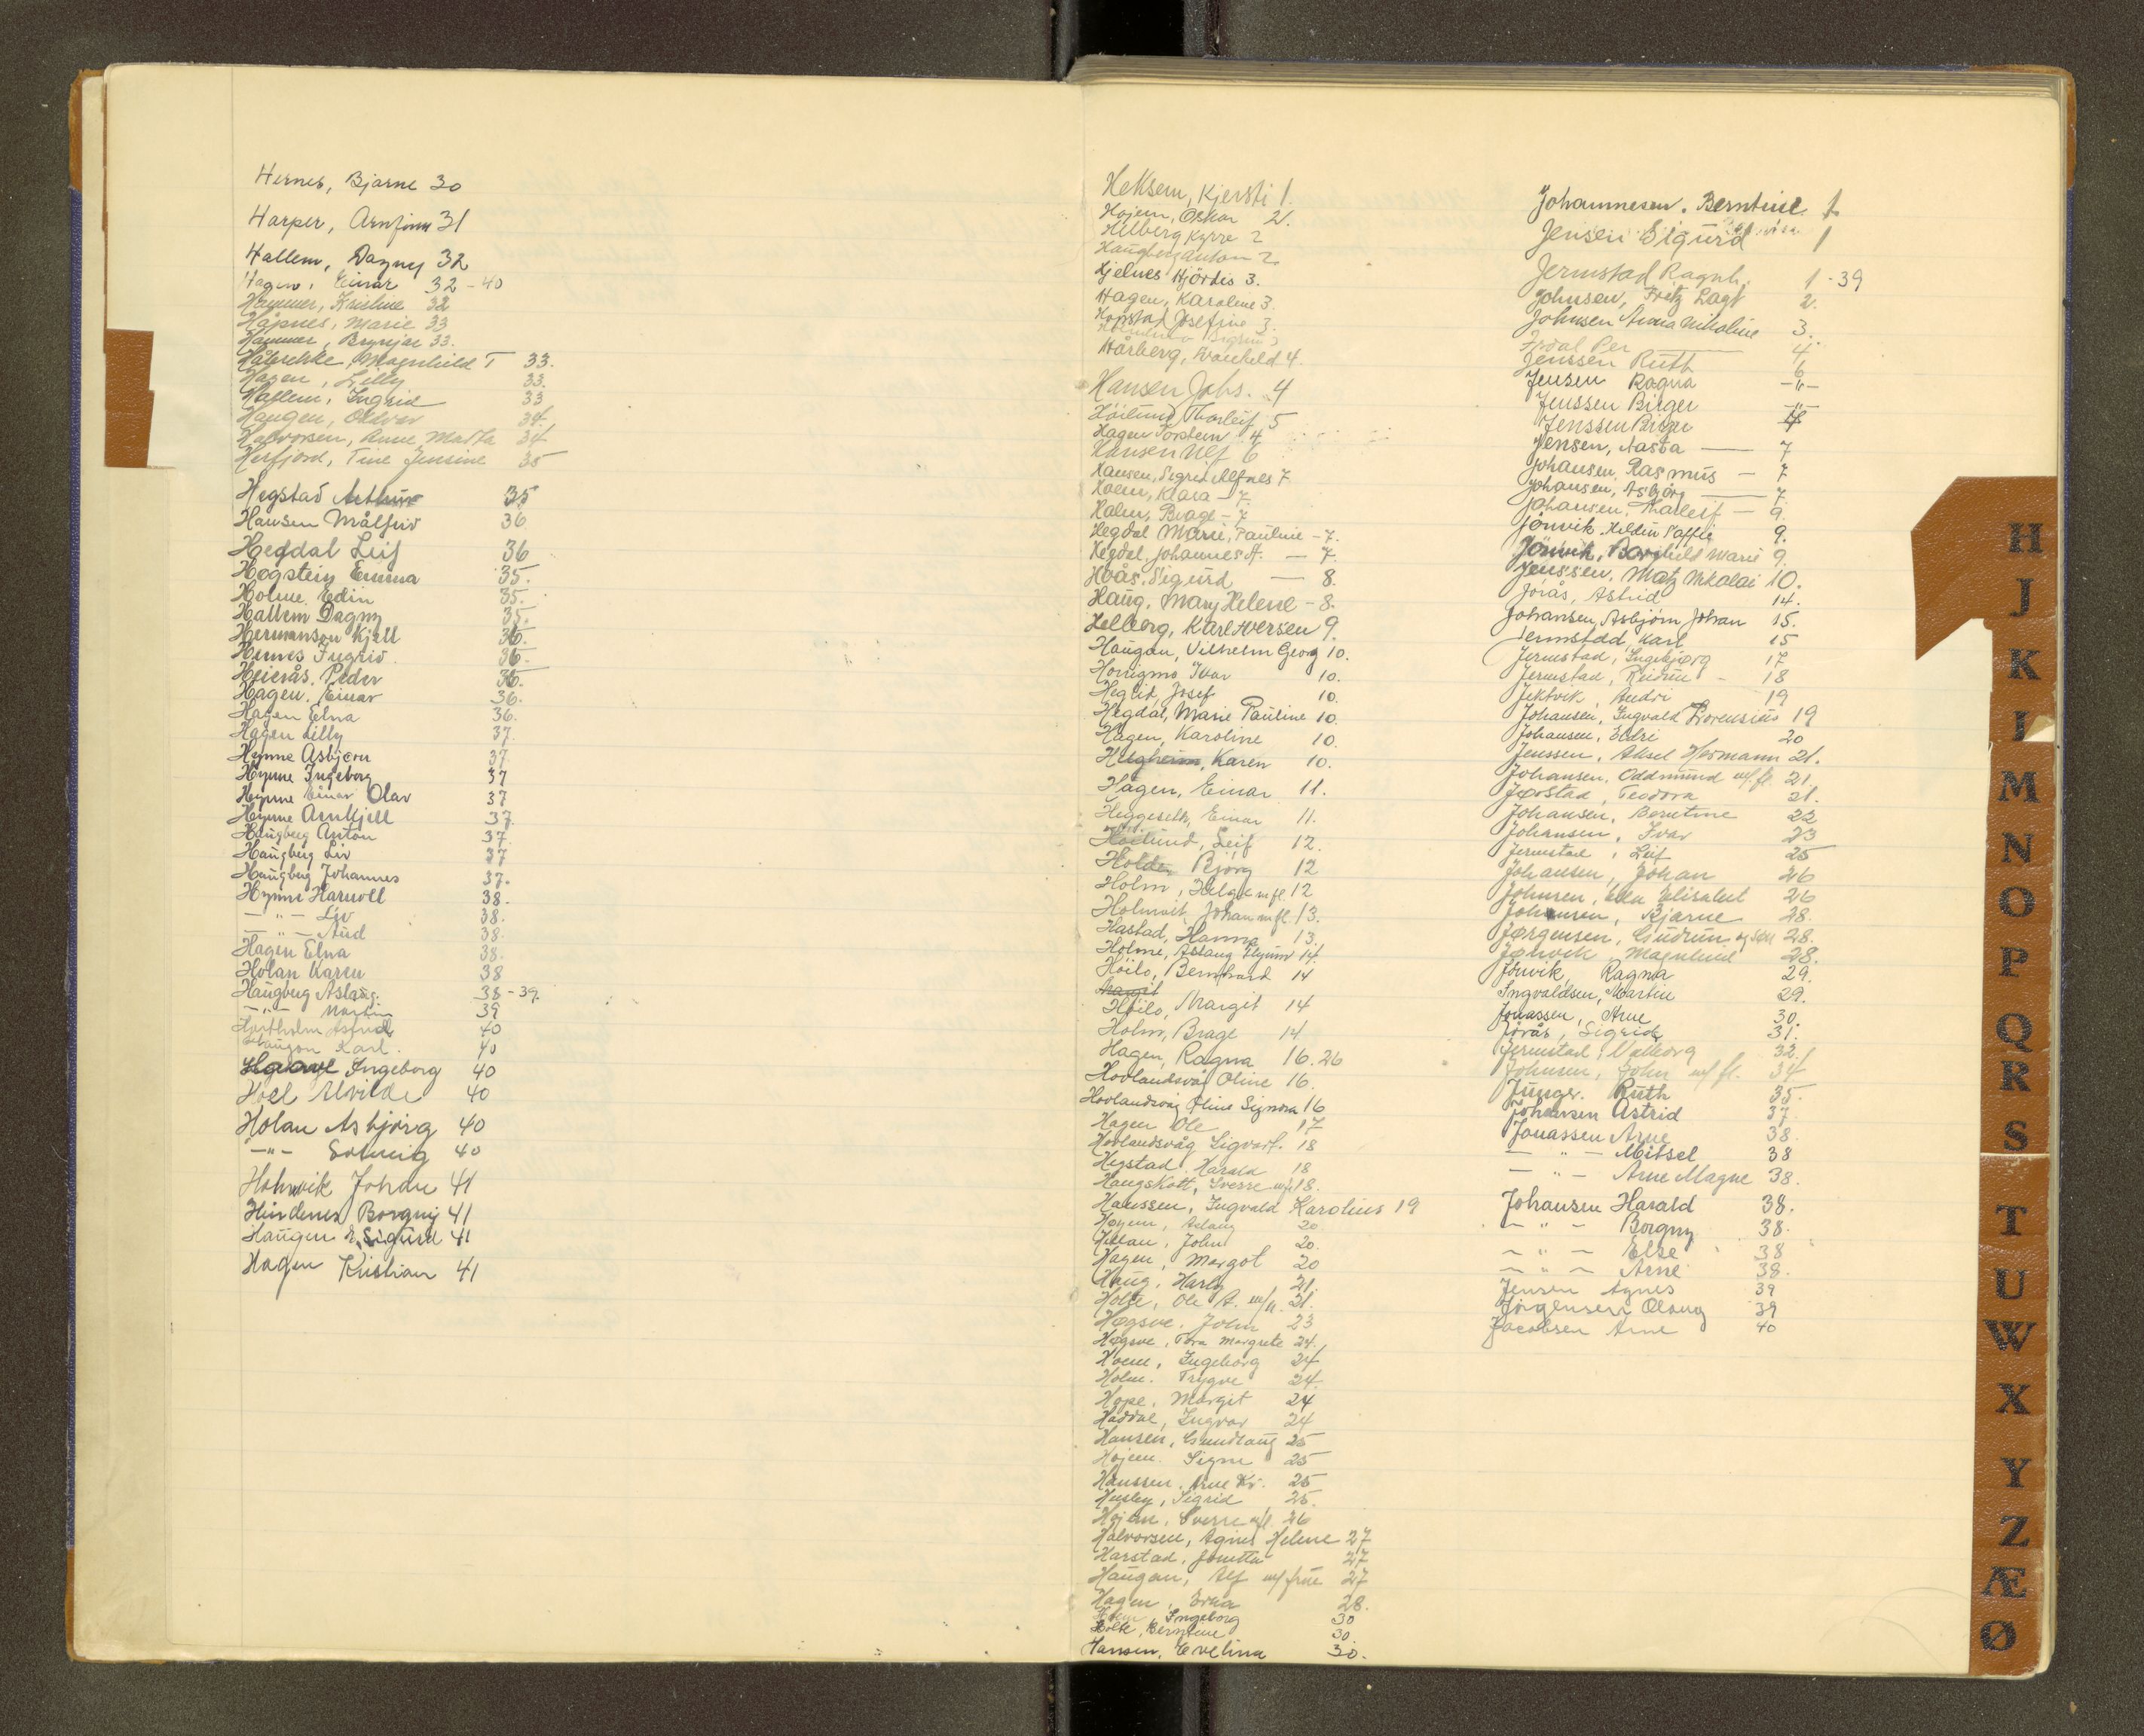 Hernes, Bjarne 30
Harper, Arnfinn 31
Hallem, Dagny 32
Hagen, Einar 32-40
Hammer, Kristine 32
Håpnes, Marie 33
Hammer, Brynjar 33.
Magnhild T 33.
Hagen, Lilly 33.
Hallem, Ingrid 33
Haugen, Oddvar 34.
Halvorsen, Anne Marta 34
Herfjord, Tine Jensine 35
Hegstad Arthur 35
Hansen Målfrid 36
Hegdal Leif 36
Høgstein Emma 35.
Holme, Edin 35.
Hallem Dagny 35.
Hermanson Kjell 36.
Hernes Ingrid 36.
Heierås, Peder 36.
Hagen, Einar 36.
Hagen Elna 36.
Hagen Lilly 37.
Hynne Asbjørn 37.
Hynne Ingeborg 37
Hynne Einar Olav 37
Hynne Arnkjell 37.
Haugberg Anton 37.
Haugberg Liv 37
Haugberg Johannes 37.
Hynne Harvoll 38.
— " — Liv 38.
— " — Aud 38.
Hagen Elna 38.
Holan Karen 38
Haugberg Aslaug. 38-39.
— " — Martin 39
Hartholm Astrid 40
Haugan Karl. 40
Ingeborg 40
Hoel Alvilde 40
Holan Asbjørg 40
— " — Solveig 40
Holmvik Johan 41
Hindenes Borgny 41
Haugen E. Sigurd 41
Hagen Kristian 41
Heksem, Kjersti 1.
Hojem, Oskar 2.
Helberg Kyrre 2
Haugberg Anton 2.
Hjelnes Hjördis 3.
Hagen, Karolene 3.
Hopstad Josefine 3.
Hårberg, Ranheld 4.
Hansen Johs. 4
Höilund, Thorleif 5
Hagen Torstein 4
Hansen Ulf 6
Hansen, Sigrid Alfnes 7
Holm, Klara — 7.
Holm, Brage — 7
Hegdal Marie, Pauline — 7.
Hegdal, Johannes A. — 7.
Hoås, Sigurd — 8.
Haug, Mary Helene — 8.
Helberg, Karl Iversen 9.
Haugan, Vilhelm Georg 10.
Honigmo Ivar 10.
Heglid, Josef 10.
Hegdal, Marie Pauline 10.
Hagen, Karoline 10.
Helgheim, Karen 10.
Hagen, Einar 11.
Heggeseth, Einar 11.
Höilund, Leif 12.
Holden Bjørg 12
Holm, Helge m fl. 12
Holmvik, Johan m fl. 13.
Hastad, Hanna 13.
Holme, Aslaug 14.
Höilo, Bernhard 14
Margit
Höilo, Margit 14
Holm, Brage 14
Hagen, Ragna 16.26
Hovlandsvåg Oline 16.
Hovlandsvåg Oline Signora 16
Hagen Ole 17
Hovlandsvåg Sigvart. 18
Hegstad. Harald 18
Haugskott, Sverre m/fl. 18.
Hanssen, Ingvald Karolius 19
Hojem, Aslaug 20
Hellan, John 20.
Hagen, Margot 20
Haug, Harly 21.
Holte, Ole A. m/fl. 21.
Høgsve. John 23
Høgsve, Tora Margrete 24.
Hoem, Ingeborg 24
Holm. Trygve 24.
Hope. Margit 24
Haddal, Ingvar 24
Hansen, Gundlaug 25
Hojem. Signe 25
Hanssen, Arne Kr. 25
Husby, Sigrid 25.
Hojem, Sverre m/fl. 26
Halvorsen, Agnes Helene 27
Harstad, Jonetta 27
Haugan, Alf m/ frue 27
Hagen, Erna 28.
Holm, Ingeborg 30
Holte, Berntine 30
Hansen, Evelina 30.
Johannesen. Berntine 1.
Jensen Sigurd 1
Jermstad Ragnh. 1-39
Johnsen, Fritz Lagt 2.
Johnsen Anna Nikoline 3.
Per 4
Jenssen Ruth 6
Jensen Ragna — " —
Jenssen Birger — " —
Jenssen Birger
Jensen, Aasta — 7
Johansen, Rasmus — 7
Johansen, Asbjörg — 7.
Johansen, Thorleif — 9.
Jönvik, 9.
Jönvik, Borghild Marie 9.
Jenssen, Matz Nikolai 10.
Jorås, Astrid 14.
Johansen, Asbjörn Johan 15.
Jermstad Karl 15
Jermstad, Ingebjørg 17
Jermstad, Reidun — 18
Jektvik, Andri 19
Johansen, Ingvald Lorensius 19
Johansen, Eldri 20
Jenssen, Aksel Hermann 21.
Johansen, Oddmund m/ fl. 21.
Jørstad, Teodora 21.
Johansen, Berntine 22
Johansen, Ivar 23
Jermstad, Leif 25
Johansen, Johan 26
Johnsen, Ella Elisabet 26
Johansen, Bjarne 28.
Jørgensen, Gudrun og sønn 28.
Jønvik, Magnhild 28.
Jönvik, Ragna 29.
Ingvaldsen, Martin 29.
Jonassen, Arne 30.
Jorås, Sigrid 31.
Jermstad, Valborg 32.
Johnsen, John m/ fl. 34
Junge. Ruth 35.
Johansen Astrid 37.
Jonassen Arne 38.
— " — Mitsel 38
— " — Arne Magne 38.
Johansen Harald 38.
— " — Borgny 38.
— " — Else 38
— " — Arne 38.
Jensen Agnes 39
Jörgensen Olaug 39
Jacobsen Arne 40
H
J
K
L
M
N
O
P
Q
R
S
T
U
W
X
Y
Z
Æ
Ø